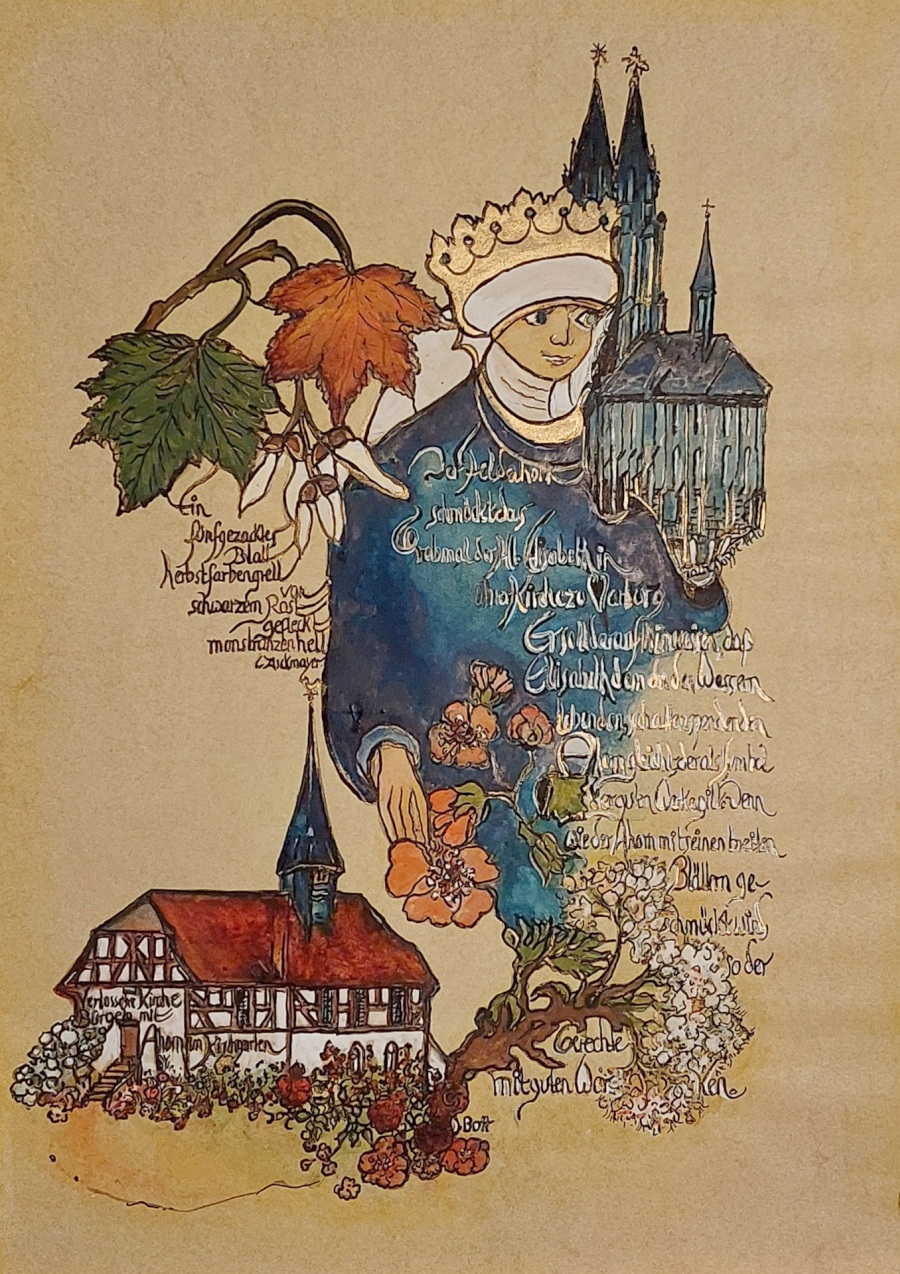 Der Feldahorn
schmückt das
Grabmal der Hl. Elisabeth in
ihrer Kirche zu Marburg
Er soll darauf hinweisen, daß
Elisabeth dem an den Wassern
lebenden, schattenspendenden
gleicht, der als Symbol
der guten Werke gilt. Denn
wie der Ahorn mit seinen breiten
Blättern ge-
schmückt wird,
so der
Gerechte
mit guten Wer-
ken.
Ein
fünfgezacktes
Blatt
herbstfarbengrell
von
schwarzem Rost
gefleckt
monstranzenhell
C. Zuckmayer
Verlossene Kirche
Bürgeln mit
Ahorn im Kirchgarten
Bott